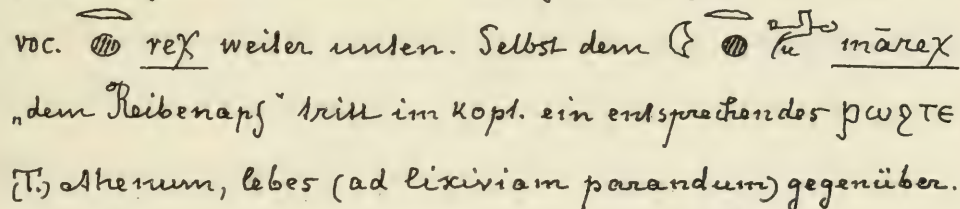 voc. 𓂋𓐍 reχ weiter unten. Selbst dem māreχ
„dem Reibenapf“ tritt im Kopt. ein entsprechendes ⲣⲱϩⲧⲉ
(T.) Ahenum, lebes (ad lixiviam parandum) gegenüber.